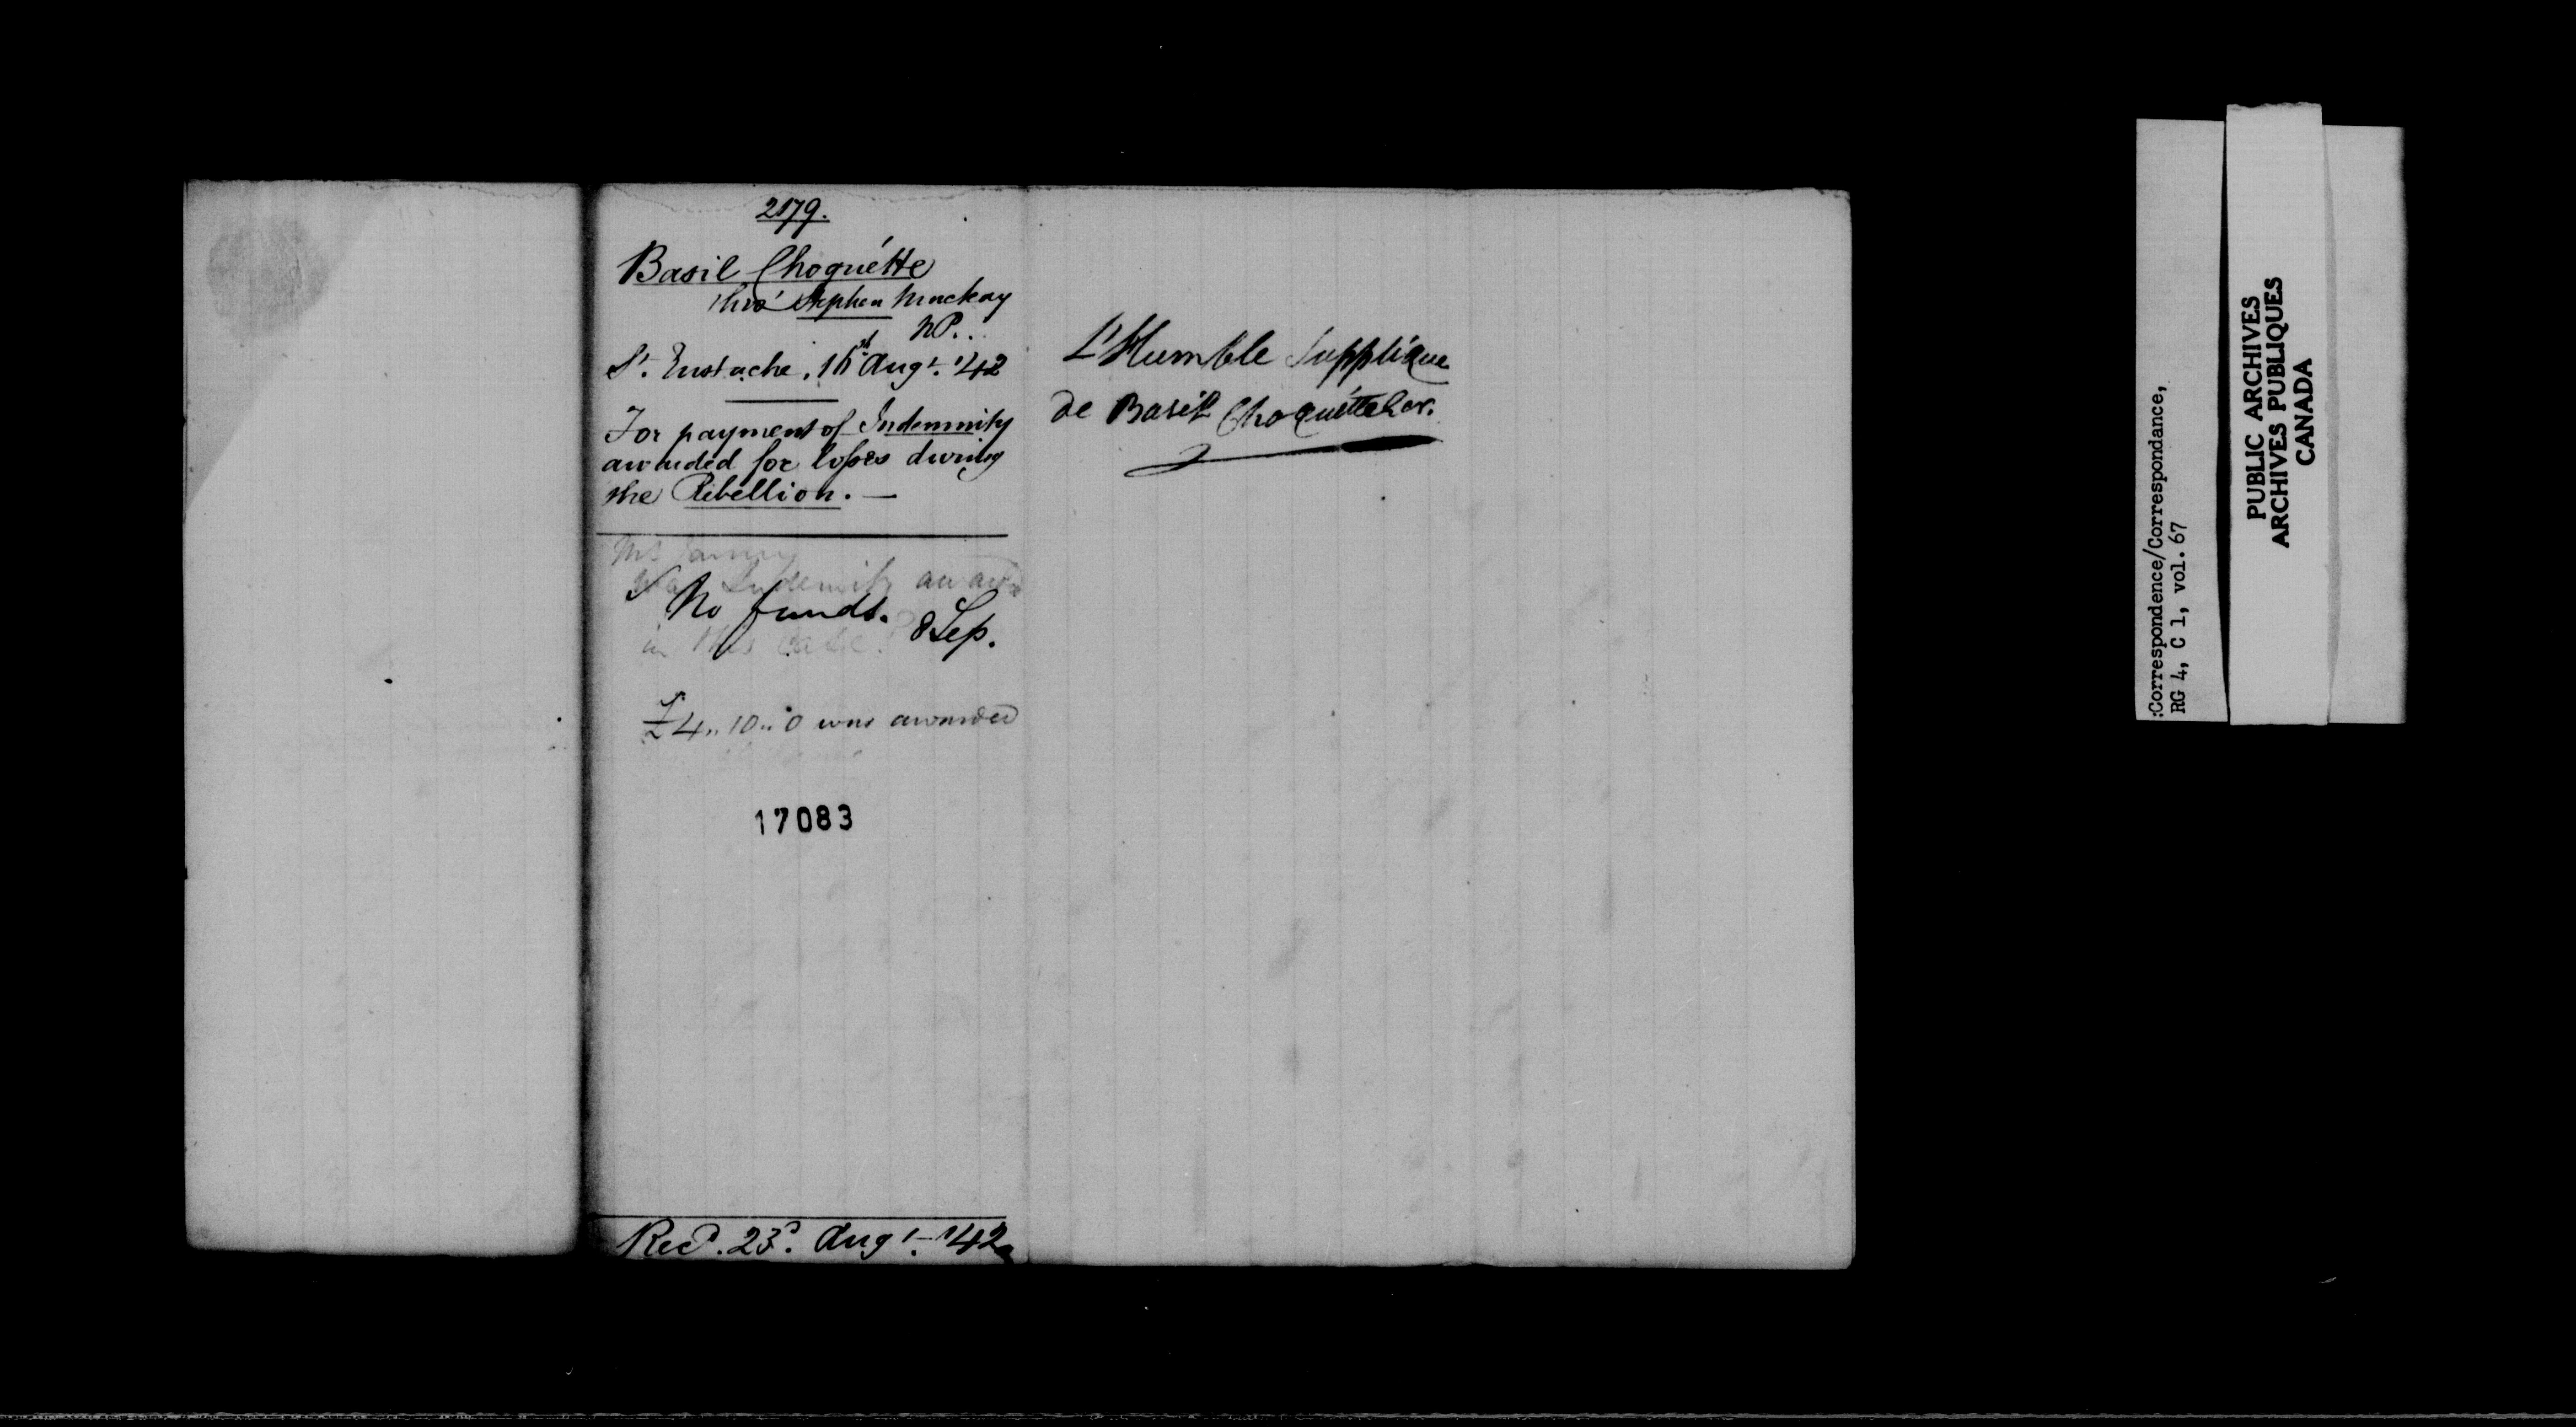 2179.
Basil Choquétte
thro' Stephen Mackay
N.P.
St. Eustache, 16th Augt. '42
For payment of Indemnity
awarded for losses during
the Rebellion. —
Mr
Indemnity award
No funds. 8 Sep.
in this case?
£4.. 10.. 0 was awarded
17083
Recd. 23d. Augt. '42
L'Humble Supplique
de Basil Choquétte
:Correspondence/Correspondance,
RG 4, C 1, vol. 67
PUBLIC ARCHIVES
ARCHIVES PUBLIQUES
CANADA